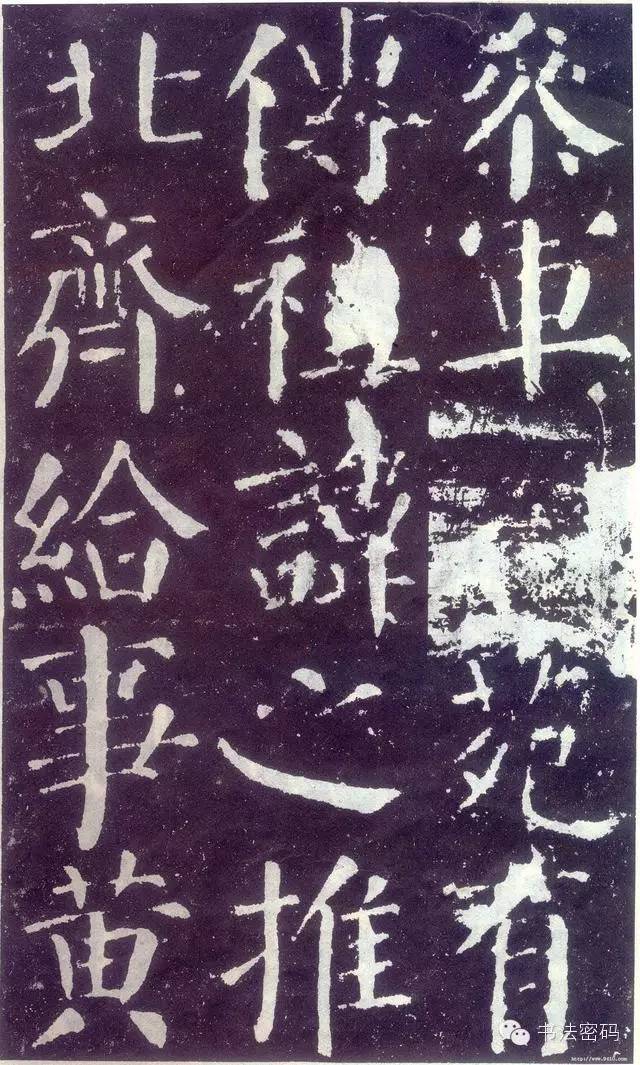 叅軍苑有
傳祖諱之推
北齊給事黄
书法密码
http://www.9610.com